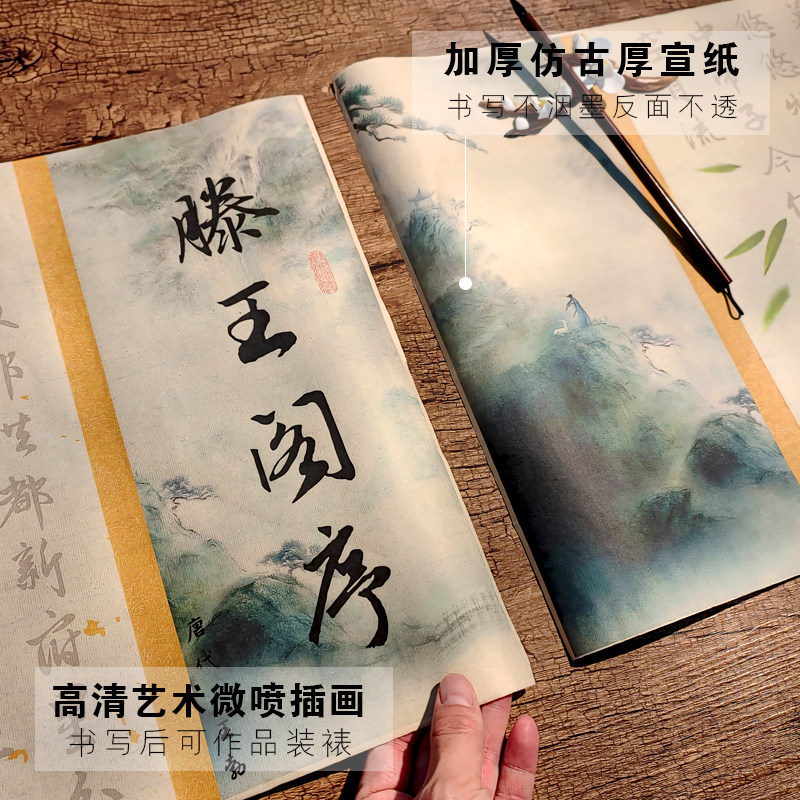 加厚仿古厚宣纸
书写不洇墨反面不透
滕王阁序
唐代
勃
都新府
悠悠
物
今
子
流
高清艺术微喷插画
书写后可作品装裱